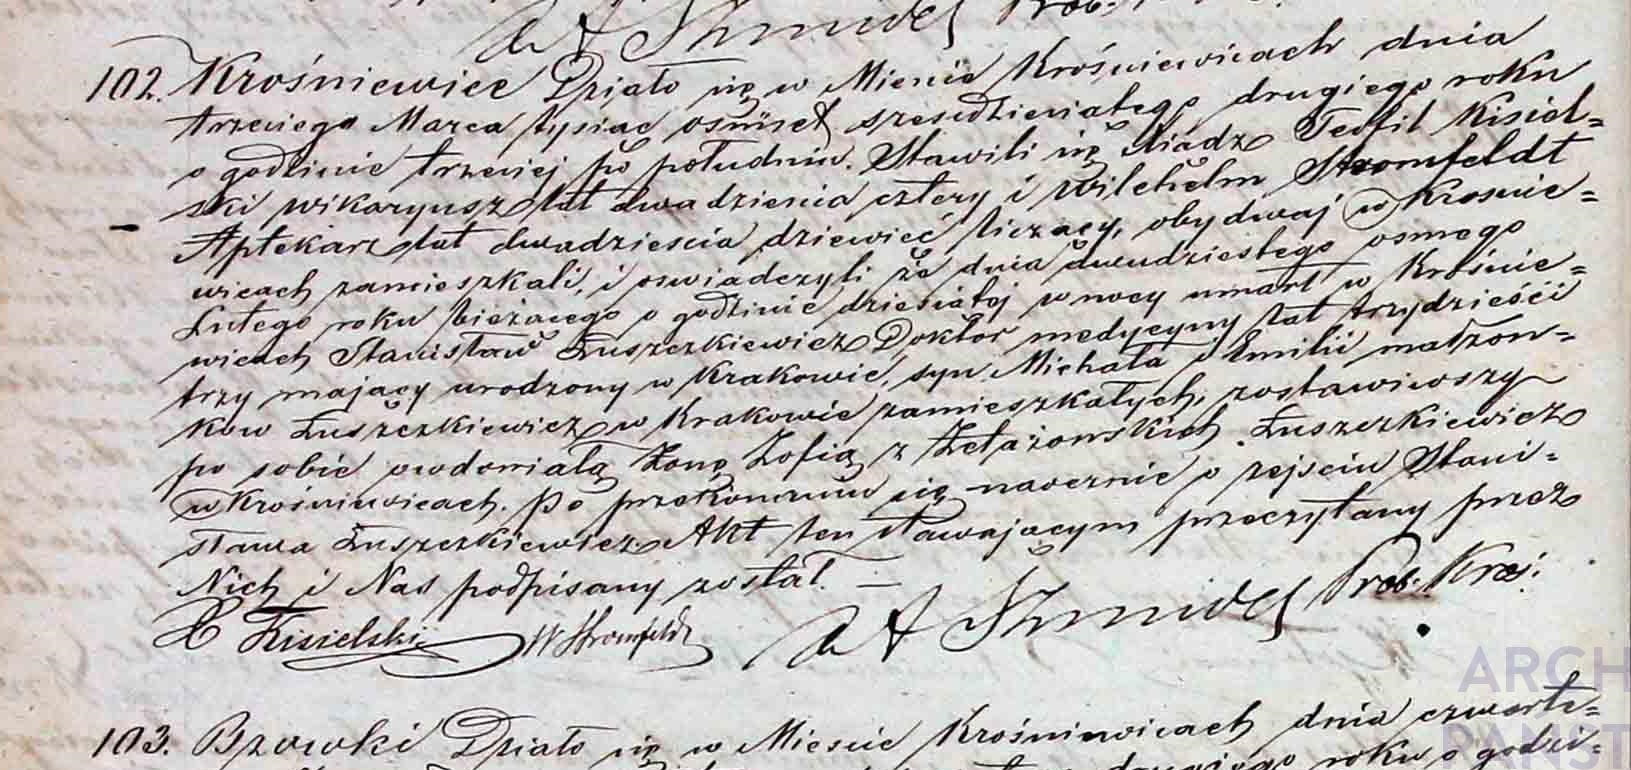 A Szmidel Prob:
102. Krośniewice Działo się w Mieście Krośniewicach dnia
trzeciego Marca tysiąc osmset szescdziesiatego drugiego roku
o godzinie trzeciej po południu. Stawili się Xiadz Teofil Kisiel=
ski wikaryusz lat dwadziescia cztery i Wilchelm Stromfeldt
Aptekarz lat dwadziescia dziewieć liczący, obydwaj w Krosnie=
wicach zamieszkali, i oswiadczyli że dnia dwudziestego osmego
Lutego roku bieżacego o godzinie dziesiatej w nocy umarł w Krośnie=
wicach Stanisław Łuszczkiewicz Doktor medycyny lat trzydzieści
trzy mający urodzony w Krakowie, syn Michała i Emilii małżon=
ków Łuszczkiewicz w Krakowie zamieszkałych, zostawiwszy
po sobie owdowiałą Żonę Zofią z Żelazowskich Łuszczkiewicz
w Krośniewicach. Po przekonaniu się naocznie o zejsciu Stani=
sława Łuszczkiewicz Akt ten stawającym przeczytany przez
Nich i Nas podpisany został. —
X Kisielski W Stromfeldt A Szmidel Prob: Kroś:
103. Bzowki Działo się w Miescie Krośniewicach dnia czwarte=
drugiego roku o godzi=
ARCH
PAŃST